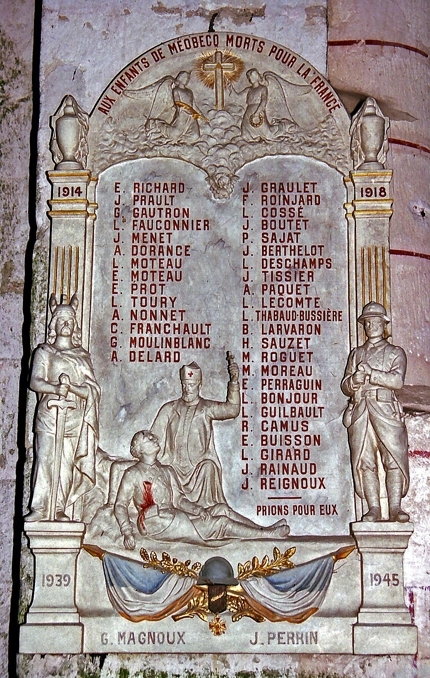 AUX ENFANTS DE MÉOBECQ MORTS POUR LA FRANCE
1914
1918
E. RICHARD
J. PRAULT
G. GAUTRON
L. FAUCONNIER
J. MENET
A. DORANCE
L. MOTEAU
L. MOTEAU
E. PROT
L. TOURY
A. NONNET
C. FRANCHAULT
G. MOULINBLANC
A. DELARD
J. GRAULET
F. ROINJARD
L. COSSÉ
J. BOUTET
P. SAJAT
J. BERTHELOT
L. DESCHAMPS
J. TISSIER
A. PAQUET
L. LECOMTE
L. THABAUD-BUSSIÈRE
B. LARVARON
H. SAUZET
M. ROGUET
M. MOREAU
E. PERRAGUIN
L. BONJOUR
L. GUILBAULT
R. CAMUS
E. BUISSON
L. GIRARD
J. RAINAUD
J. REIGNOUX
PRIONS POUR EUX
1939
1945
G. MAGNOUX
J. PERRIN